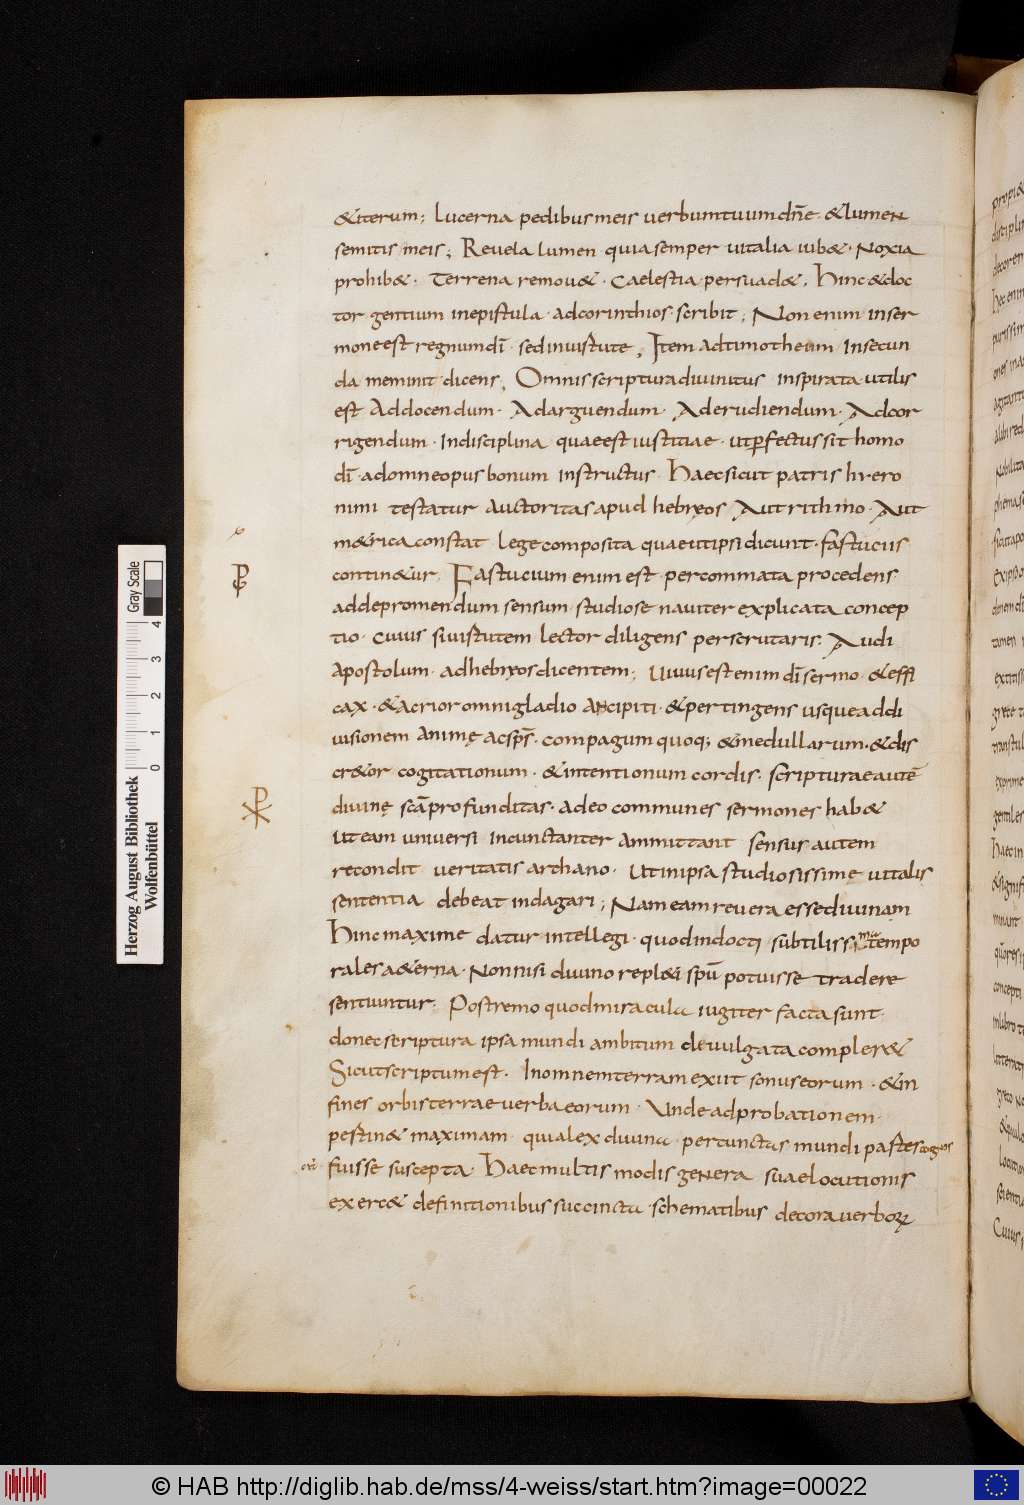 &iterum; lucerna pedibusmeis uerbumtuumdñe · &lumen
semitis meis; Reuela lumen quiasemper uitalia iub& · Noxia
prohib& · Terrena remou& · Caelestia persuad&; Hinc&doc
tor gentium inepistula · adcorinthios · scribit; Nonenim inser
moneest regnumdī · sedinuirtute; Item adtimotheum Insecun
da meminit dicens; Omnisscripturadiuinitus inspirata utilis
est Addocendum · Adarguendum · Aderudiendum · Adcor
rigendum · Indisciplina quaeestiustitiae · utꝑfectussit homo
dī · adomneopusbonum instructus · Haecsicut patris hiero
nimi testatur auctoritasapud hebreos Autrithmo · Aut
m&rica constat lege composita quaeutipsidicunt · fastuciis
contin&ur; Fastucium enim est · percommata procedens
addepromendum sensum · studiose nauiter explicata concep
tio · Cuius siuirtutem lector diligens perscrutaris · Audi
apostolum · adhebreosdicentem; Uiuusestenim dīsermo · &effi
cax · &acrior omnigladio ancipiti · &pertingens usqueaddi
uisionem animę acsp̄s · compagumquoq; &medullarum · &dis
cr&or cogitationum · &intentionum cordis · scripturaeautē
diuinę scāprofunditas · adeo communes sermones hab&
Uteam uniuersi incunctanter ammittant sensus autem
recondit ueritatis archano · Utinipsa studiosissime uitalis
sententia debeat indagari; Nameamreuera essediuinam
Hincmaxime datur intellegi · quodindocti subtilissima tempo
rales a&erna · Nonnisi diuino repl&i spū potuisse tradere
sentiuntur; Postremo quodmiracula iugiter facta sunt
donecscriptura ipsa mundi ambitum deuulgata compler&
Sicutscriptumest · Inomnemterramexiit sonuseorum · &in
fines orbisterraeuerbaeorum · Undeadprobationem
pestin& maximam quialexdiuina percunctas mundi partes cognos
fuisse suscepta · Haecmultis modis genera suaelocutionis
exerc& definitionibus succincta schematibus decorauerboꝝ
Herzog August Bibliothek
Wolfenbüttel
Gray Scale
0 1 2 3 4
© HAB http://diglib.hab.de/mss/4-weiss/start.htm?image=00022